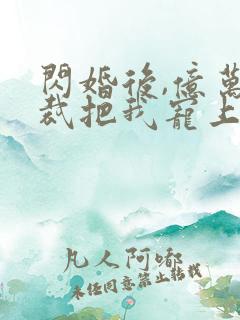 閃婚後,億萬
裁把我寵上
凡人阿嘟
未經同意禁止轉載